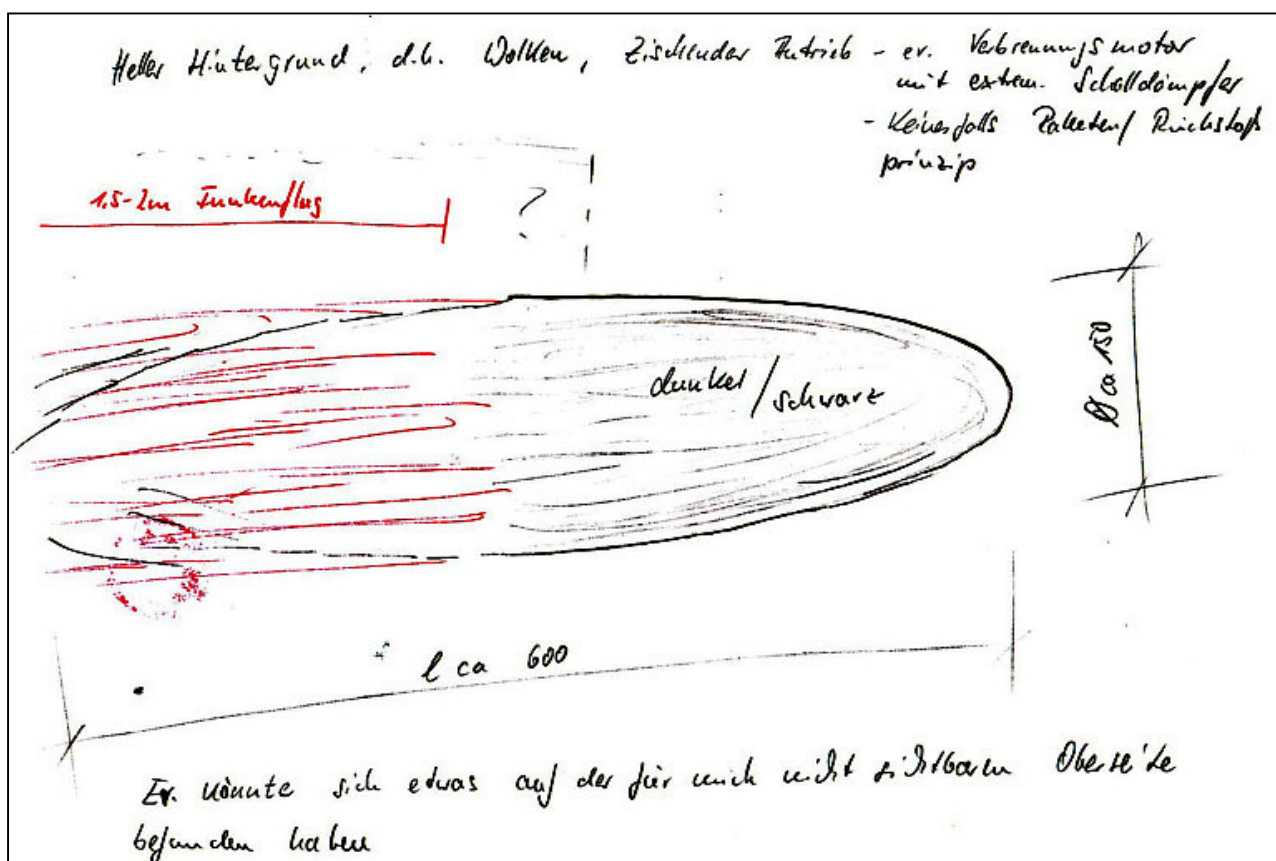 Heller Hintergrund, d.h. Wolken, Zischender Antrieb - ev. Verbrennungsmotor
mit extrem. Schalldämpfer
- Keinesfalls Raketen/Rückstoß
prinzip
1,5-2m Funkenflug
?
dunkel/schwarz
Ø ca 150
l ca 600
Ev. könnte sich etwas auf der für mich nicht sichtbaren Oberseite
befunden haben